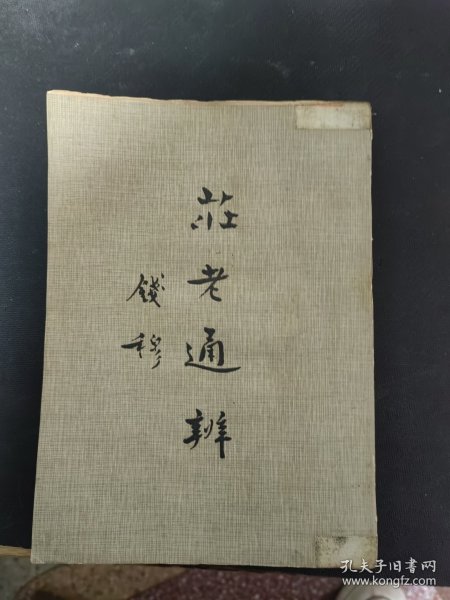 莊老通辨
錢穆
孔夫子旧书网
www.kongfz.com